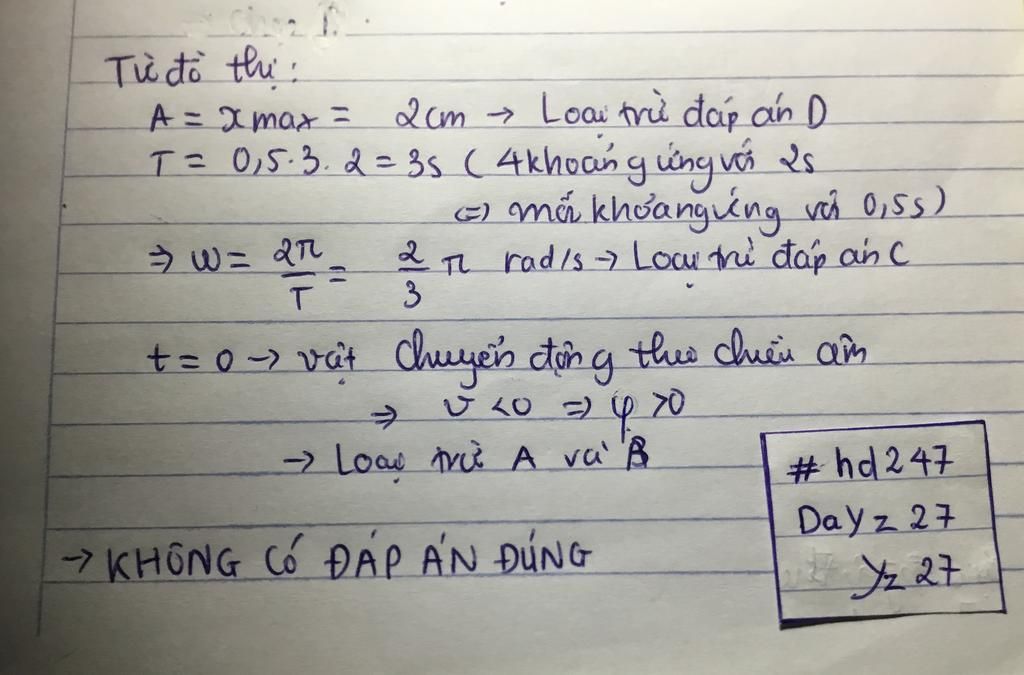 Từ đồ thị:
A = xmax = 2cm → Loại trừ đáp án D
T = 0,5.3.2 = 3s ( 4 khoảng ứng với 2s
<=> mỗi khoảng ứng với 0,5s)
⇒ ω = 2π/T = 2/3 π rad/s → Loại trừ đáp án C
t = 0 → vật chuyển động theo chiều âm
⇒ v < 0 ⇒ φ > 0
→ Loại trừ A và B
→ KHÔNG CÓ ĐÁP ÁN ĐÚNG
# hd247
Dayz 27
Yz 27